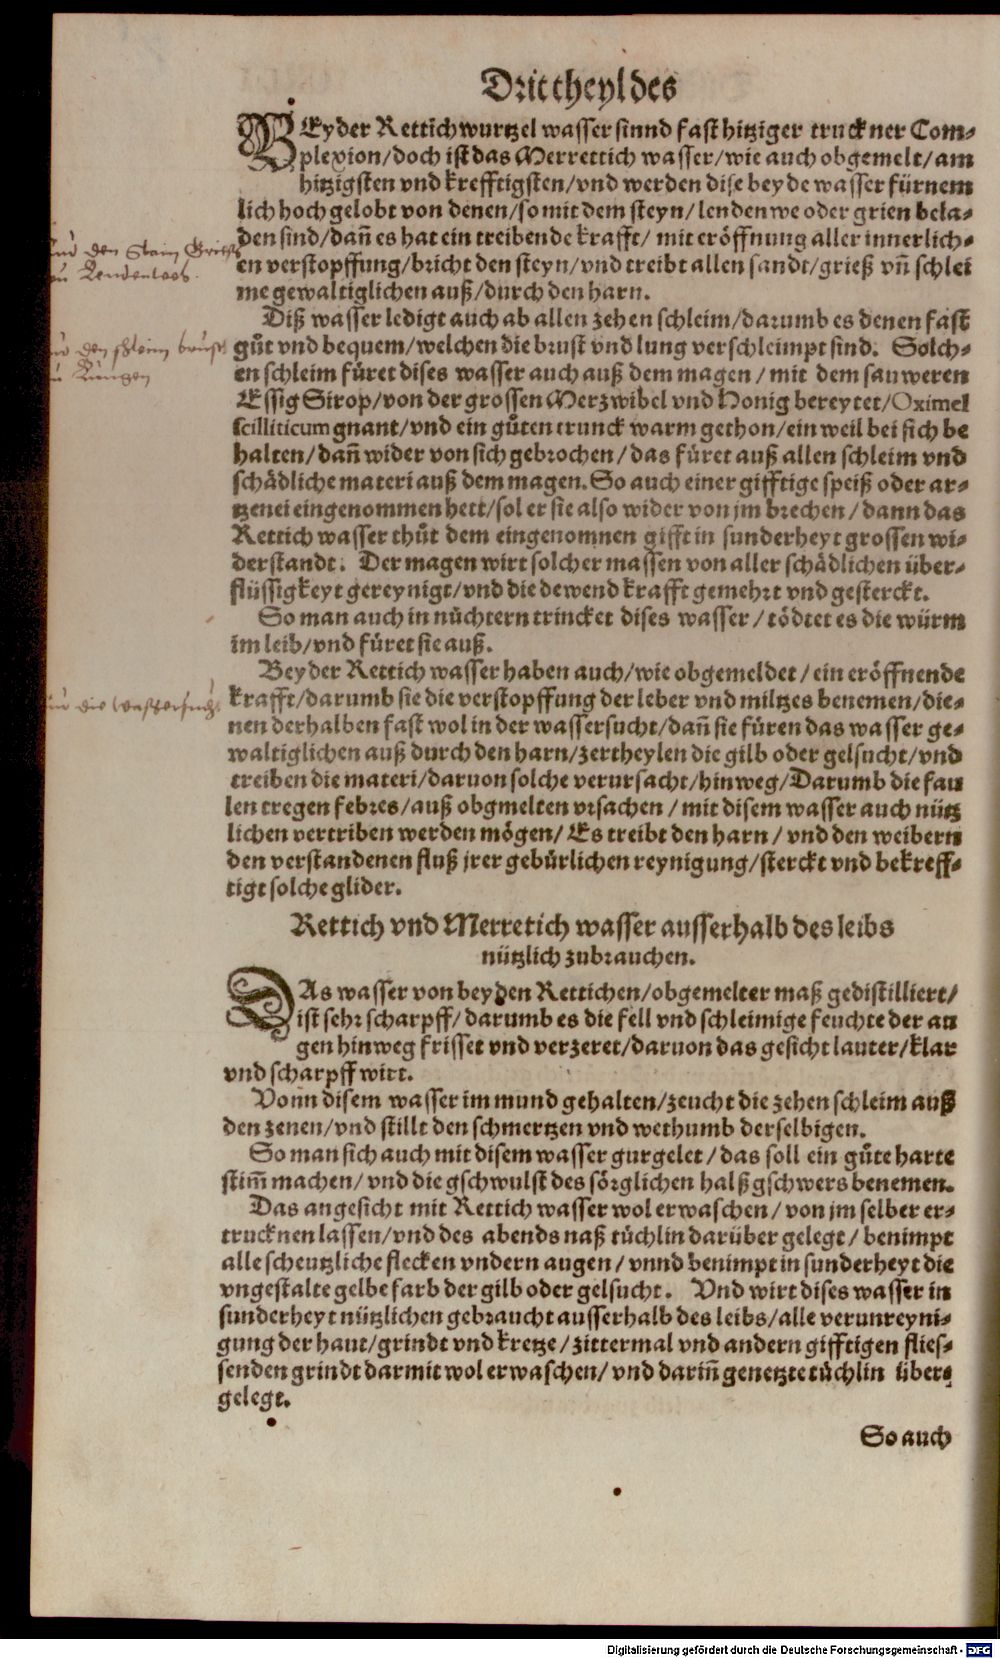 Drit theyl des
BEyder Rettichwurtzel wasser sinnd fast hitziger truckner Com⸗
plexion/doch ist das Merrettich wasser/wie auch obgemelt/am
hitzigsten vnd krefftigsten/vnd werden dise beyde wasser fürnem
lich hoch gelobt von denen/so mit dem steyn/lendenwe oder grien bela⸗
den sind/dañ es hat ein treibende krafft/ mit eröffnung aller innerlich⸗
en verstopffung/bricht den steyn/vnd treibt allen sandt/grieß vñ schlei
me gewaltiglichen auß/durch den harn.
den Stain Grieß
Diß wasser ledigt auch ab allen zehen schleim/darumb es denen fast
gůt vnd bequem/welchen die brust vnd lung verschleimpt sind. Solch⸗
en schleim fůret dises wasser auch auß dem magen/ mit dem sauweren
Essig Sirop/von der grossen Merzwibel vnd Honig bereytet/Oximel
scilliticum gnant/vnd ein gůten trunck warm gethon/ein weil bei sich be
halten/dañ wider von sich gebrochen/das fůret auß allen schleim vnd
schådliche materi auß dem magen. So auch einer gifftige speiß oder ar⸗
tzenei eingenommen hett/sol er sie also wider von jm brechen/dann das
Rettich wasser thůt dem eingenomnen gifft in sunderheyt grossen wi⸗
derstandt. Der magen wirt solcher massen von aller schådlichen über⸗
flüssigkeyt gereynigt/vnd die dewend krafft gemehrt vnd gesterckt.
den schleim brust
Lungen
So man auch in nůchtern trincket dises wasser/tödtet es die würm
im leib/vnd fůret sie auß.
Beyder Rettich wasser haben auch/wie obgemeldet/ein eröffnende
krafft/darumb sie die verstopffung der leber vnd miltzes benemen/die⸗
nen derhalben fast wol in der wassersucht/dañ sie fůren das wasser ge⸗
waltiglichen auß durch den harn/zertheylen die gilb oder gelsucht/vnd
treiben die materi/daruon solche verursacht/hinweg/Darumb die fau
len tregen febres/auß obgmelten vrsachen/mit disem wasser auch nütz
lichen vertriben werden mögen/Es treibt den harn/vnd den weibern
den verstandenen fluß jrer gebürlichen reynigung/sterckt vnd bekreff⸗
tigt solche glider.
die Wassersucht
Rettich vnd Merretich wasser ausserhalb des leibs
nützlich zubrauchen.
DAs wasser von beyden Rettichen/obgemelter maß gedistilliert/
ist sehr scharpff/darumb es die fell vnd schleimige feuchte der au
gen hinweg frisset vnd verzeret/daruon das gesicht lauter/klar
vnd scharpff wirt.
Vonn disem wasser im mund gehalten/zeucht die zehen schleim auß
den zenen/vnd stillt den schmertzen vnd wethumb derselbigen.
So man sich auch mit disem wasser gurgelet/das soll ein gůte harte
stim̃ machen/vnd die gschwulst des sörglichen halßgschwers benemen.
Das angesicht mit Rettich wasser wol erwaschen/von jm selber er⸗
trucknen lassen/vnd des abends naß tůchlin darüber gelegt/benimpt
alle scheutzliche flecken vndern augen/vnnd benimpt in sunderheyt die
vngestalte gelbe farb der gilb oder gelsucht. Vnd wirt dises wasser in
sunderheyt nützlichen gebraucht ausserhalb des leibs/alle verunreyni⸗
gung der haut/grindt vnd kretze/zittermal vnd andern gifftigen flies⸗
senden grindt darmit wol erwaschen/vnd dariñ genetzte tůchlin über⸗
gelegt.
So auch
Digitalisierung gefördert durch die Deutsche Forschungsgemeinschaft - DFG